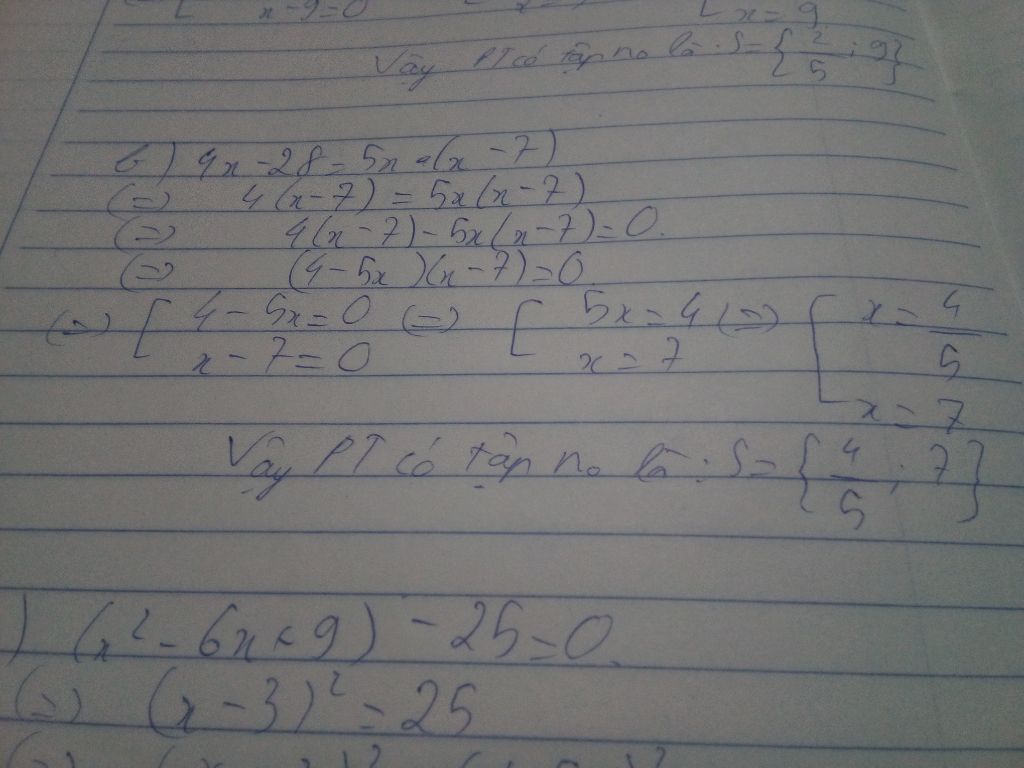 x-9=0 x=9
Vậy PT có tập no là : S={2/5 ; 9}
b) 4x-28=5x(x-7)
(=) 4(x-7)=5x(x-7)
(=) 4(x-7)-5x(x-7)=0.
(=) (4-5x)(x-7)=0
(=) [ 4-5x=0 (=) [ 5x=4 (=) [ x=4/5
x-7=0 x=7 x=7
Vậy PT có tập no là : S={4/5 ; 7}
) (x²-6x+9)-25=0.
(=) (x-3)²=25